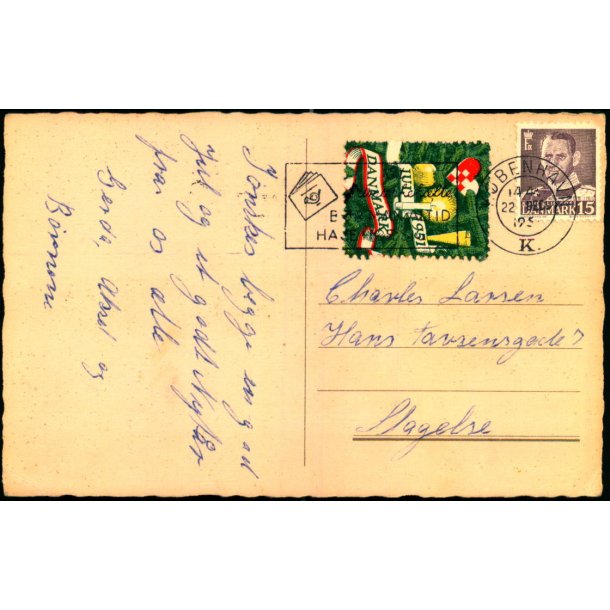 Ønskes begge en god
Jul og et godt Nytår
fra os alle
Gerda, Aksel og
Børnene
DANMARK
JUL
1951
KØBENHAVN
22.
195
K.
DANMARK 15
Charles Larsen
Hans Tavsensgade 7
Slagelse